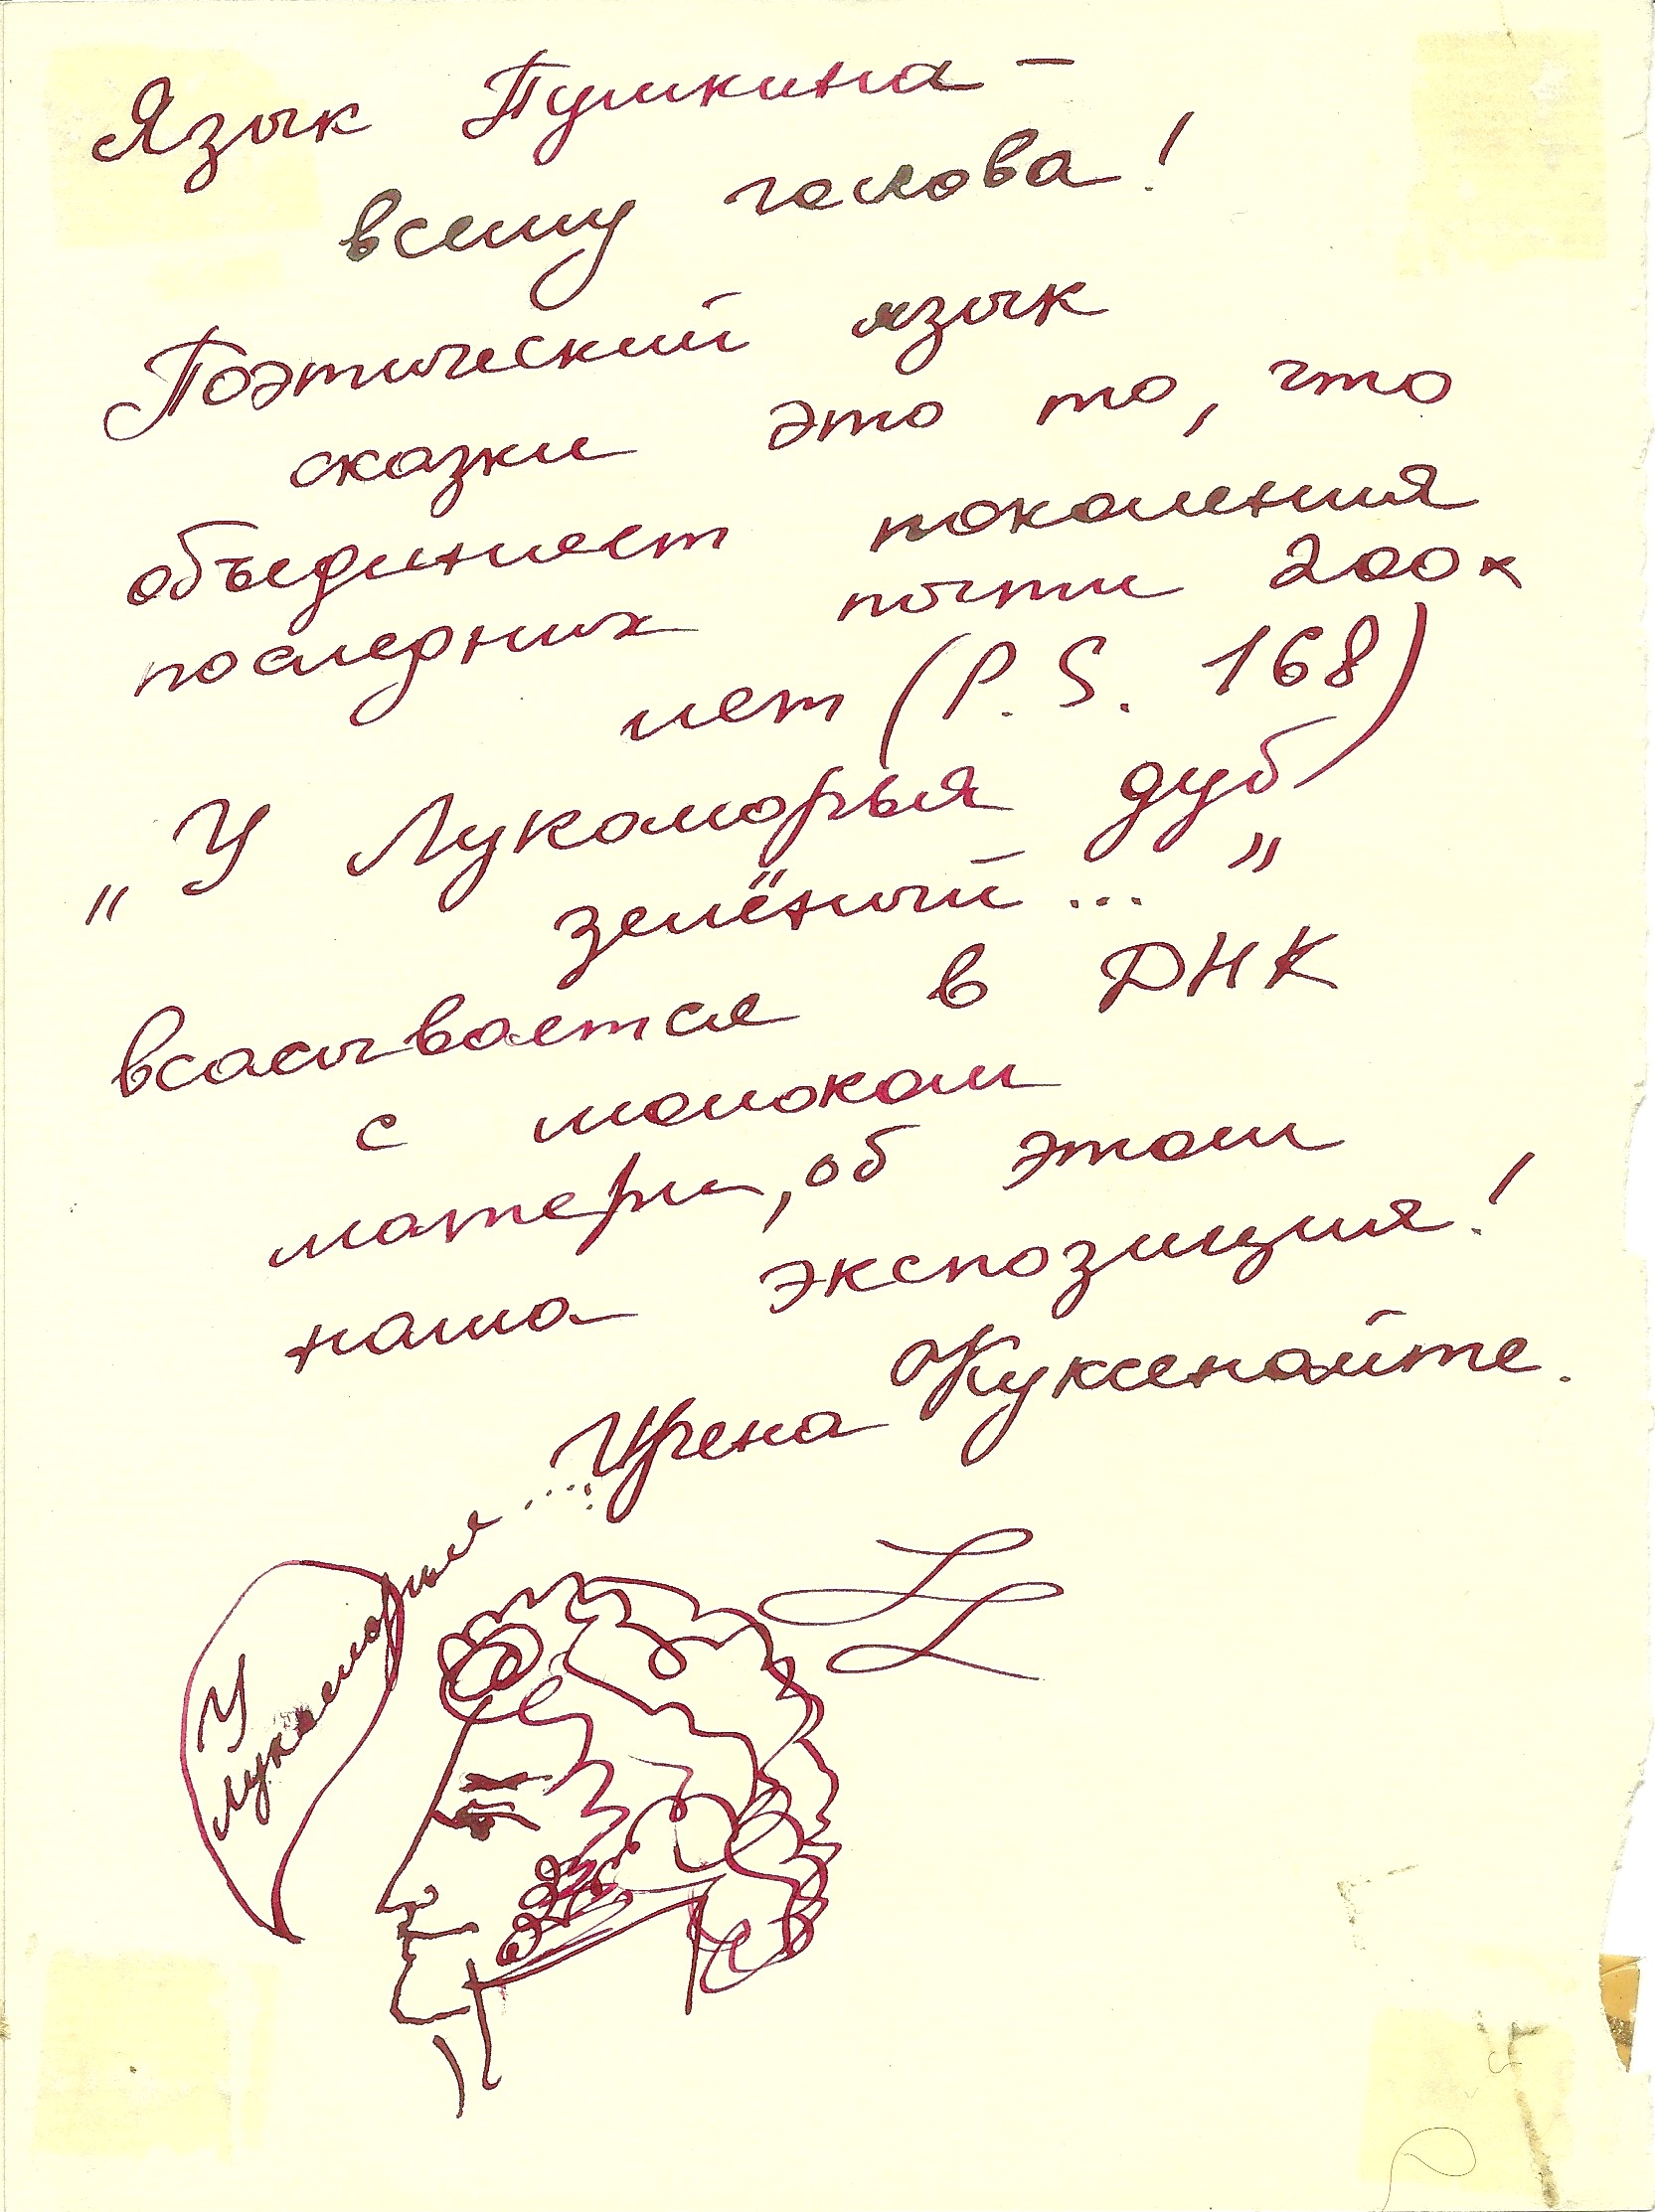 Язык Пушкина –
всему голова!
Поэтический язык
сказки это то, что
объединяет поколения
последних почти 200х
лет (P.S. 168)
„У Лукоморья дуб
зелёный..."
всасывается в ДНК
с молоком
матери, об этом
наша экспозиция!
Ирена Куксенайте.
У
Лукоморья....